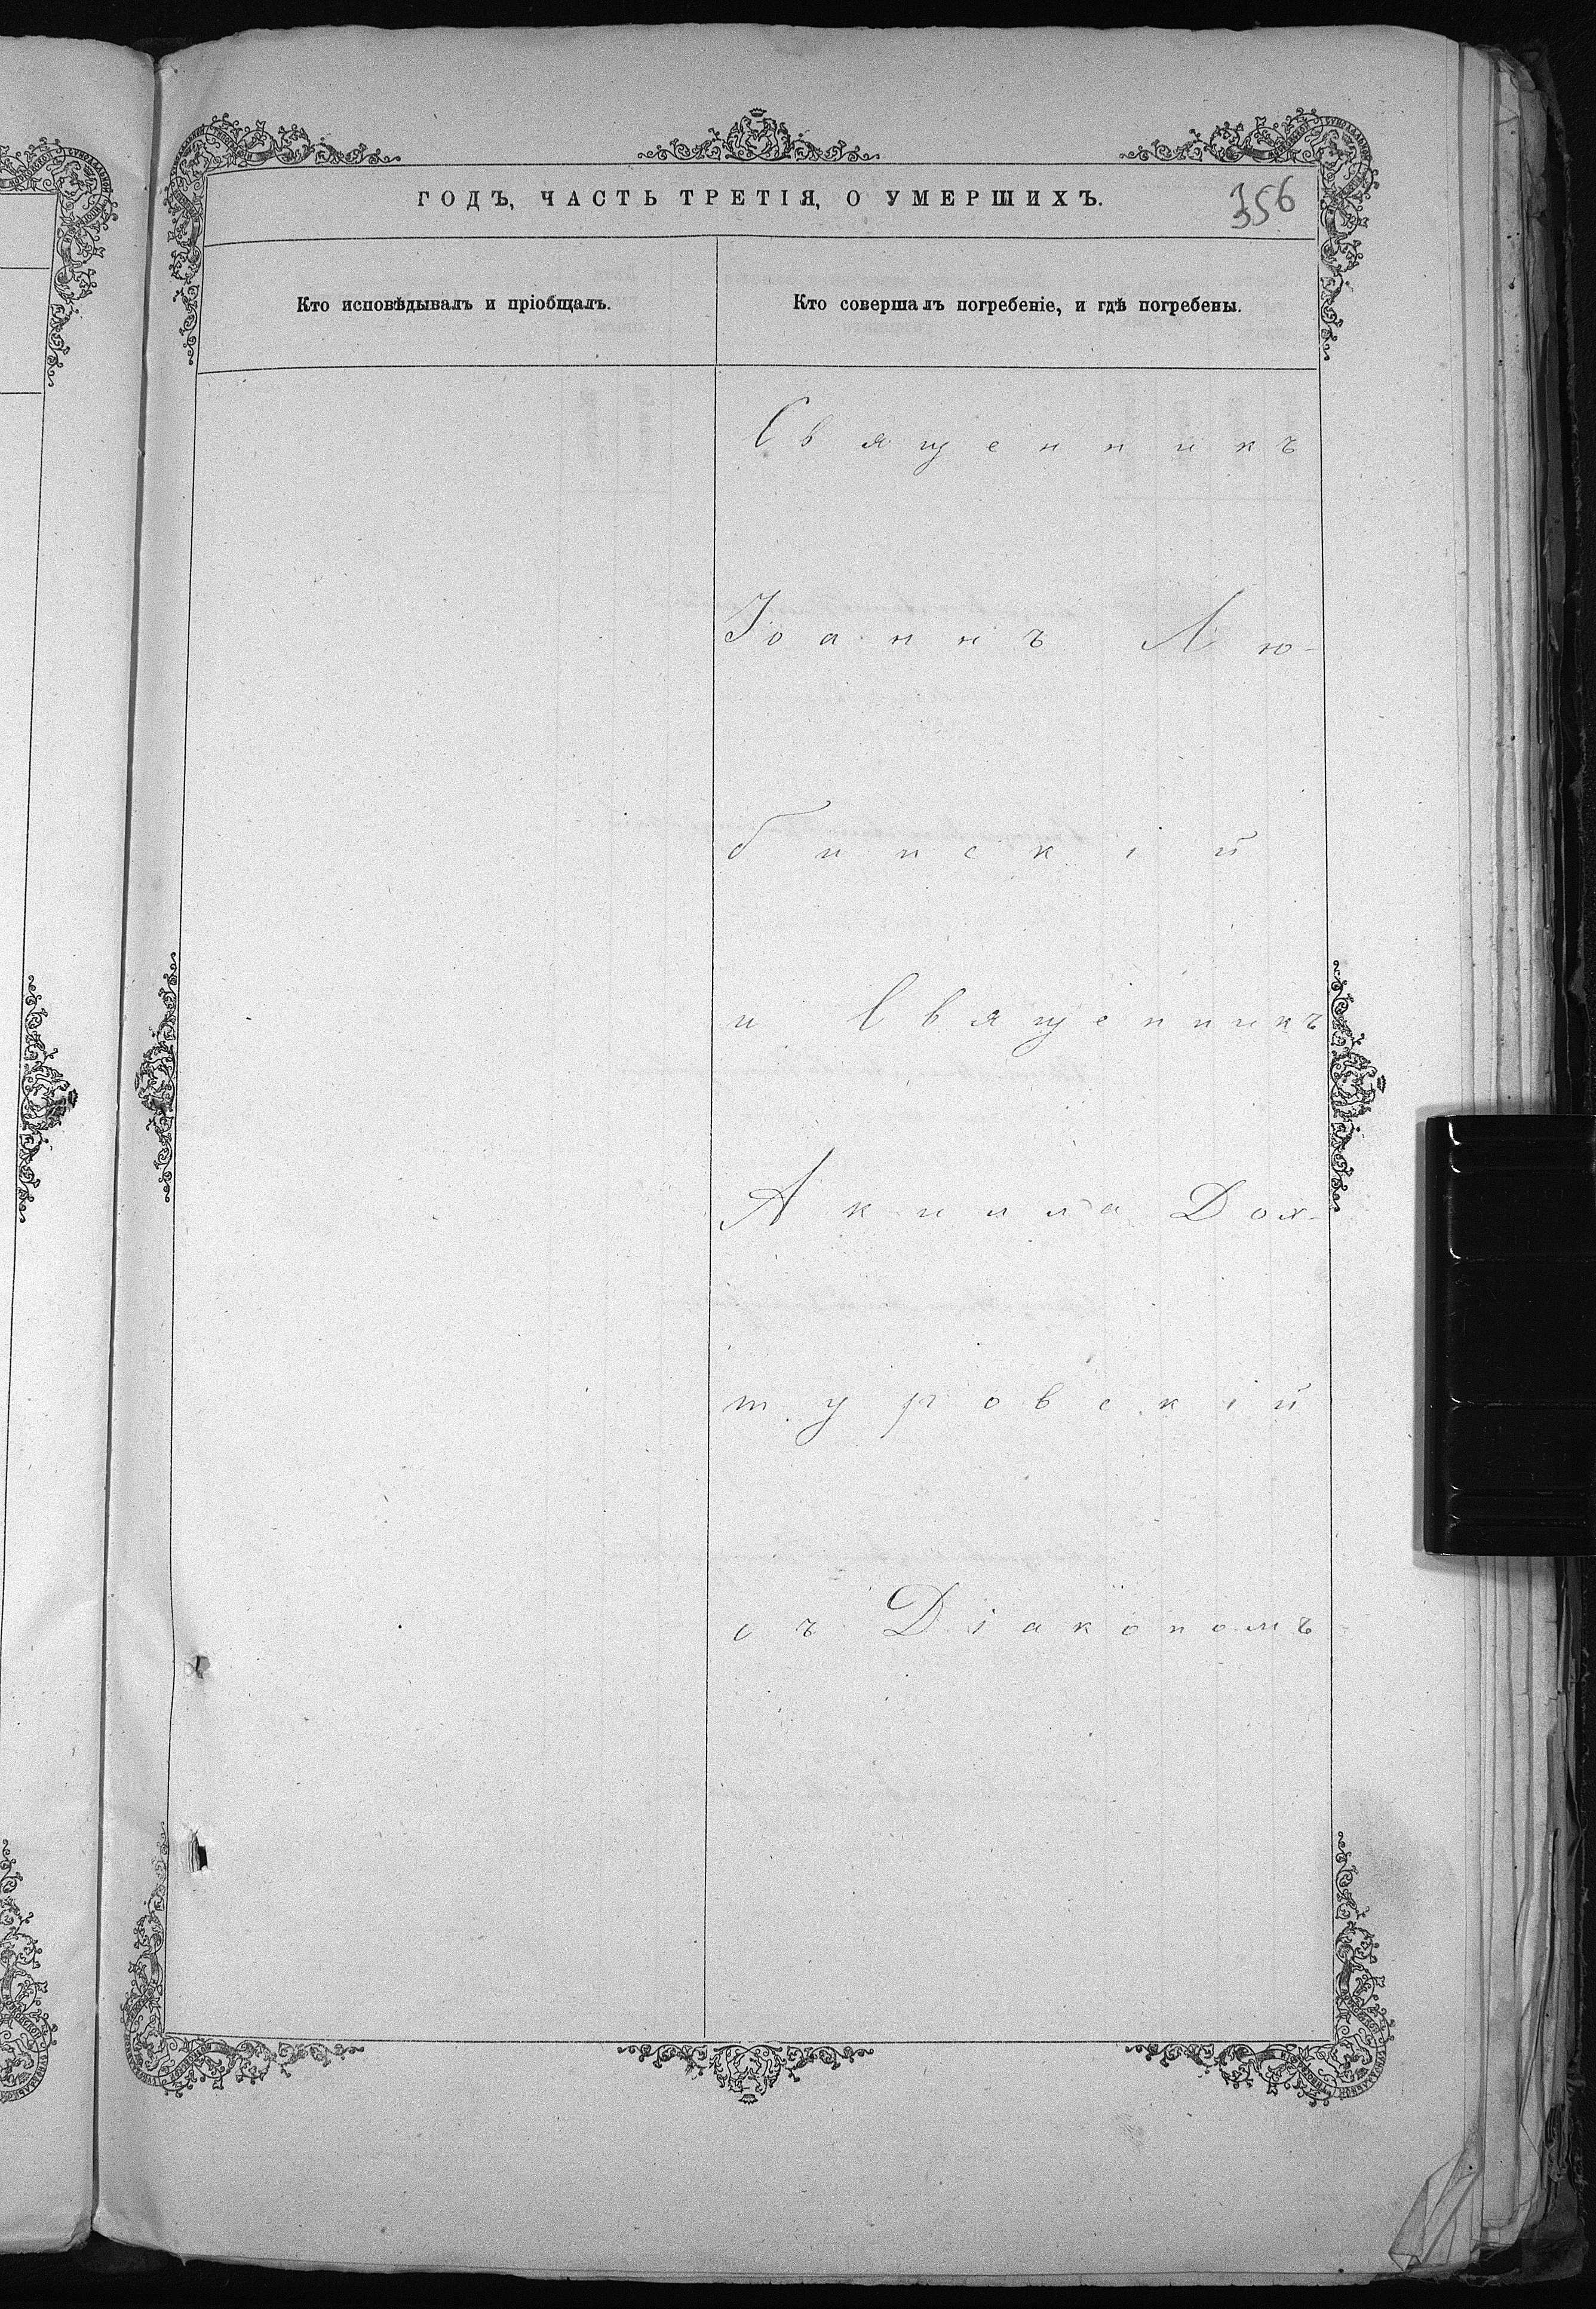 ГОДЪ, ЧАСТЬ ТРЕТІЯ, О УМЕРШИХЪ.
356
Кто исповѣдывалъ и пріобщалъ.
Кто совершалъ погребеніе, и гдѣ погребены.
Священникъ
Іоаннъ Лю-
бинскій
и Священникъ
Акилла Дох-
туровскій
съ Діакономъ